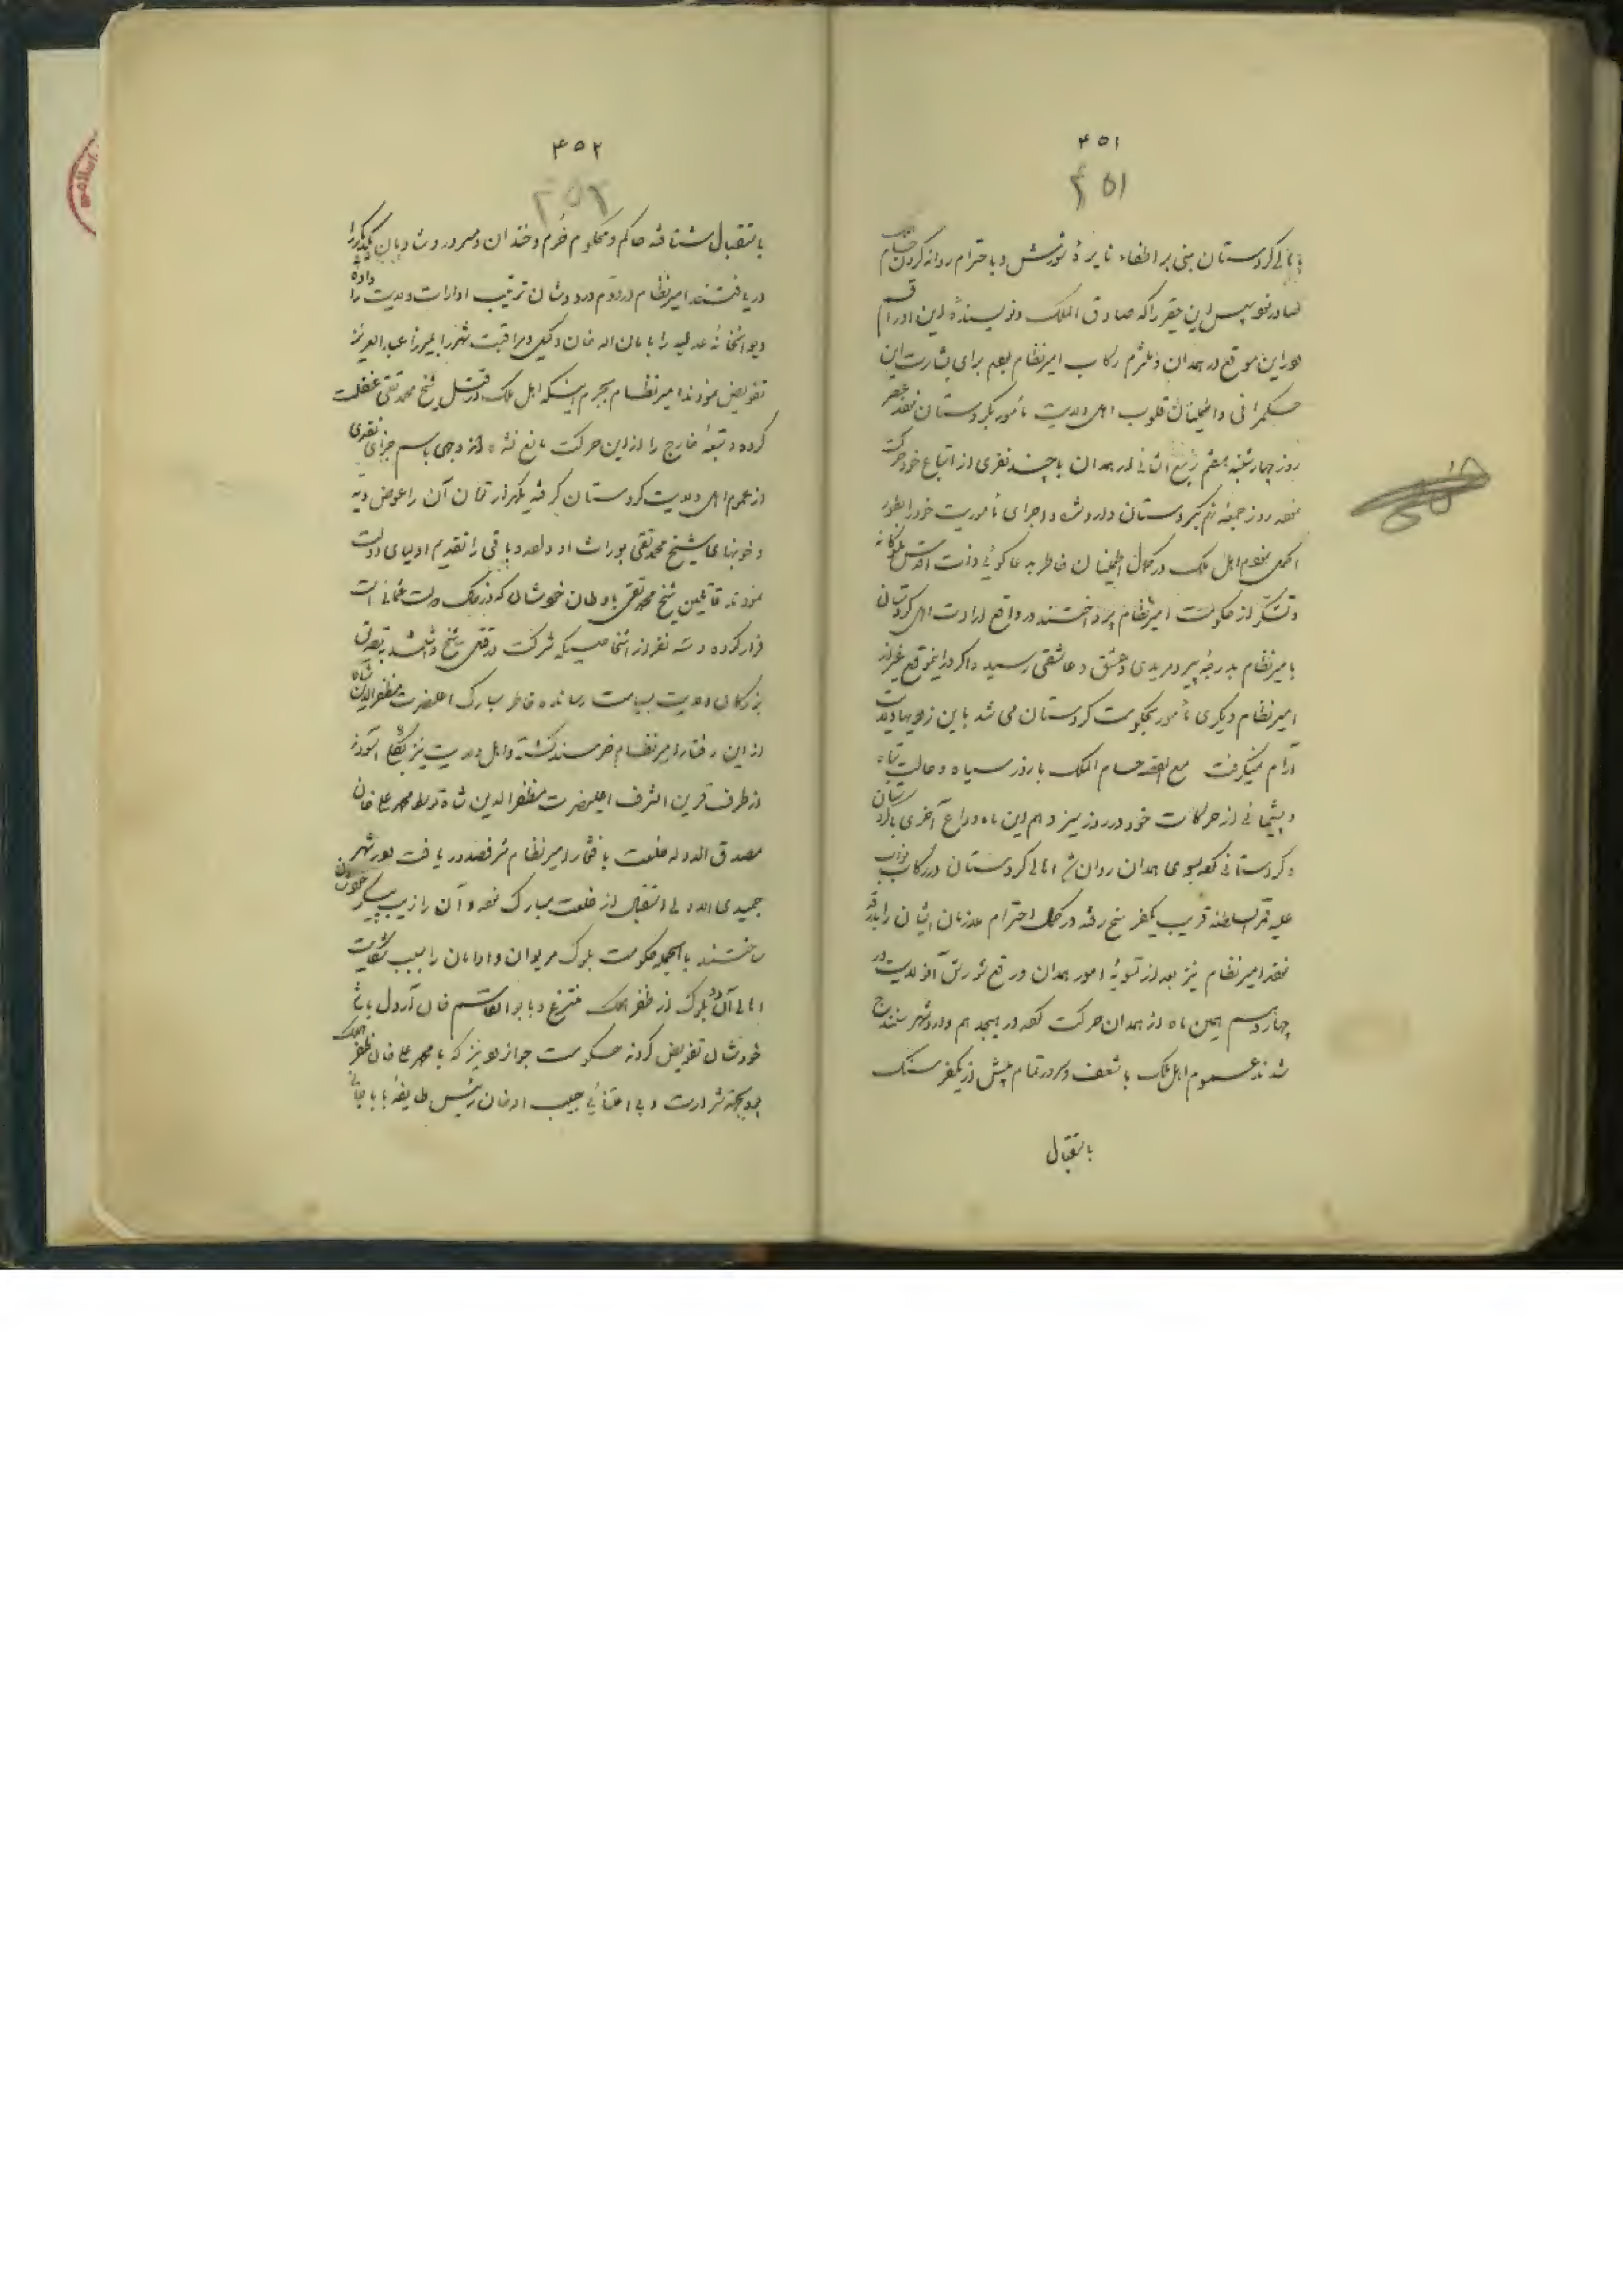 ۴۵۱
۴۵۱
باهالی کردستان مبنی بر اطفاء نایرهٔ شورش و باحترام روانه کردن حسام
صادر نمود سپس این حقیر را که صادق الملک و نویسندهٔ این اوراقم
در این موقع در همدان و ملتزم رکاب امیرنظام بودم برای بشارت این
حکمرانی و اطمینان قلوب اهل ولایت مأمور بکردستان
روز چهارشنبه هفتم ربیع الثانی از همدان با چند نفری از اتباع خود حرکت
نموده روز جمعه نهم بکردستان وارد شده و اجرای مأموریت خود را بطور
اکمل نمودم اهل ملک در کمال اطمینان خاطر بدعاگوئی ذات اقدس ملوکانه
و تشکر از حکومت امیرنظام پرداختند در واقع ارادت اهل کردستان
بامیرنظام بدرجهٔ پیر و مریدی و عشق و عاشقی رسید و اگر در اینموقع غیر از
امیرنظام دیگری مأمور بحکومت کردستان می شد باین زودیها ولایت
آرام نمیگرفت مع القصه حسام الملک با روز سیاه و حالت تباه
و پشیمانی از حرکات خود در روز سیزدهم این ماه وداع آخری با کردستان
و کردستانی کرده بسوی همدان روان شد اهالی کردستان در رکاب نواب
علیه قمر السلطنه قریب یکفرسخ رفته در کمال احترام ایشان را بدرقه
امیرنظام نیز بعد از تسویهٔ امور همدان و رفع شورش آن ولایت در
چهاردهم همین ماه از همدان حرکت کرده در هیجدهم وارد شهر سنندج
شدند عموم اهل ملک با شعف و سرور تمام بیش از یکفرسنگ
باستقبال
۴۵۲
۴۵۲
باستقبال شتافته حاکم و محکوم خرم و خندان و مسرور و شادمان یکدیگر را
دریافتند امیرنظام در دوم ورودشان ترتیب ادارات ولایت را داده
دیوانخانهٔ عدلیه را بامان اله خان وکیل و مراقبت شهر را بمیرزا عبدالعزیز
تفویض نمودند امیرنظام بجرم اینکه اهل ملک در قتل شیخ محمد تقی غفلت
کرده و تبعهٔ خارج را از این حرکت مانع نشده اند وجهی باسم جزای نقدی
از عموم اهل ولایت کردستان گرفته یکهزار تومان آن را عوض دیه
و خونبهای شیخ محمد تقی بوراث او داده و باقی را تقدیم اولیای دولت
نمودند قاتلین شیخ محمد تقی باوطان خودشان که در ملک دولت عثمانی است
فرار کرده و سه نفر از اشخاصیکه شرکت در قتل شیخ داشتند بتصدیق
بزرگان ولایت بسیاست رسانده خاطر مبارک اعلیحضرت مظفرالدین شاه
از این رفتار امیرنظام خرسند گشته و اهل ولایت نیز بکلی آسودند
از طرف قرین الشرف اعلیحضرت مظفرالدین شاه توسط محمد علی خان
مصدق الدوله خلعت بافتخار امیرنظام شرف صدور یافت در شهر
جمیدی الاولی استقبال از خلعت مبارک نموده و آن را زیب پیکر خودشان
ساختند بالجمله حکومت بلوک مریوان و اورامان را بسبب شکایت
اهالی آن دو بلوک از ظفر الملک منتزع و بابوالقاسم خان آردل باشی
خودشان تفویض کردند حکومت جوانرود نیز که با محمد علی خان ظفر الملک
بود بجهة شرارت و بی اعتنائی حبیب اله خان رئیس طایفهٔ باباجانی